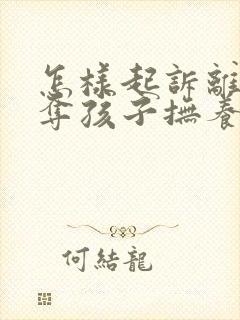 怎樣起訴離
奪孩子撫養
何結龍